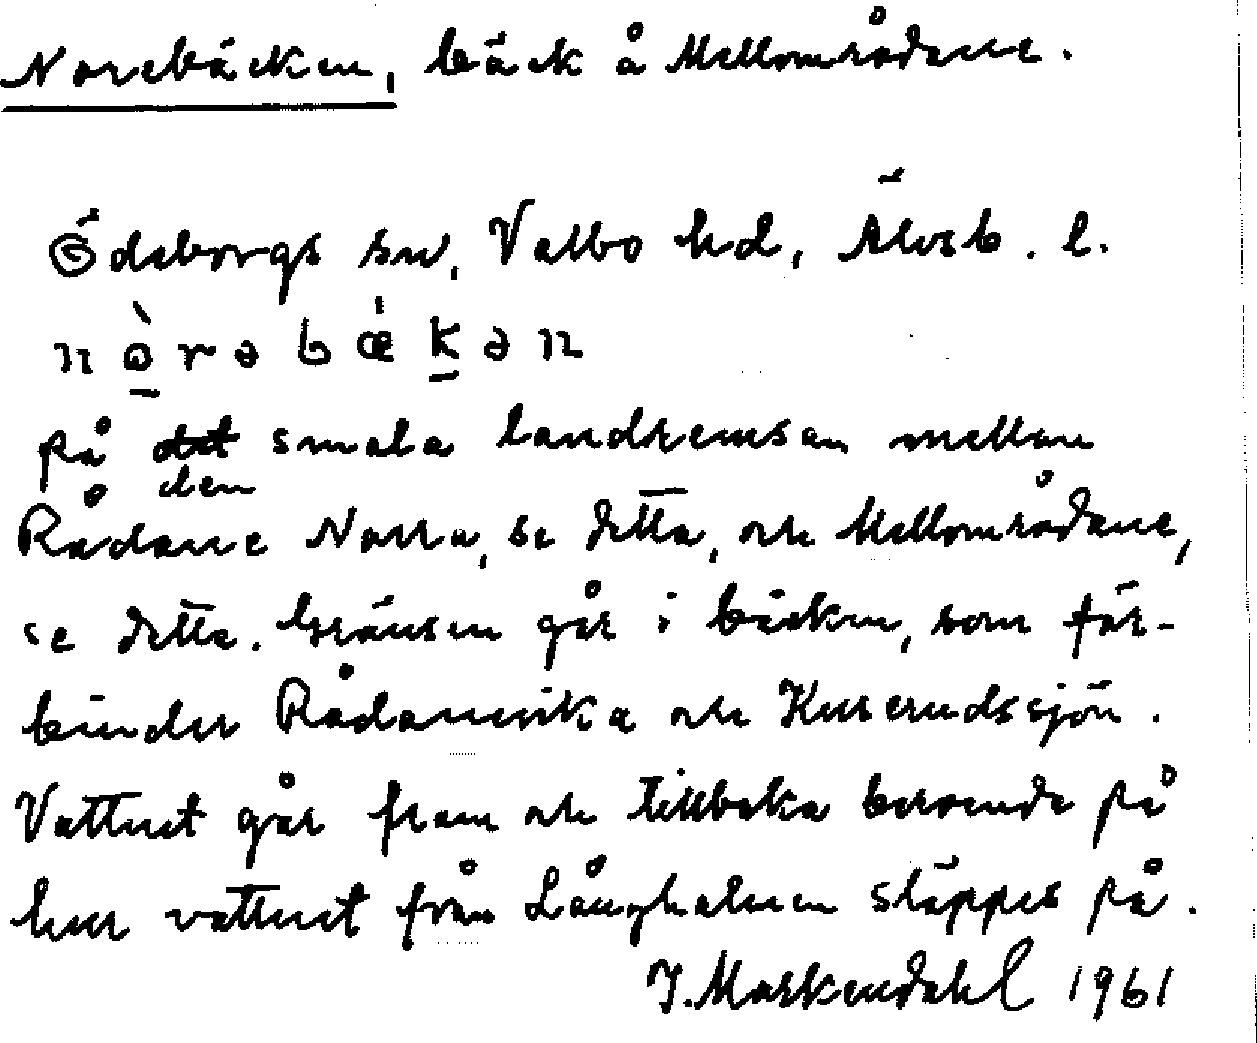 Norebäcken, bäck å Mellområdane.
Ödeborgs sn, Valbo hd, Älvsb. l.
nòrəbǽkən
på det smala landremsan mellan
den
Rådane Norra, se detta, och Mellområdane,
se detta. Gränsen går i bäcken, som för-
binder Rådanevika och Kuserudssjön.
Vattnet går fram och tillbaka beroende på
hur vattnet från Långhalmen släppes på.
J. Markendahl 1961